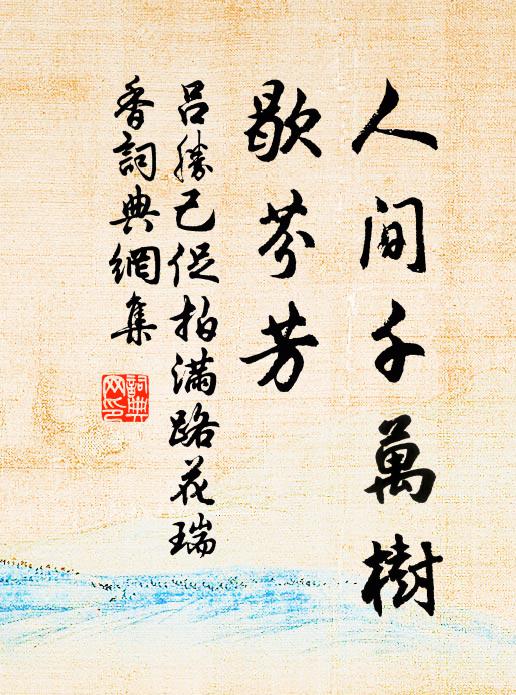 人間千萬樹
歇芬芳
呂勝己促拍滿路花瑞
香詞典網集
詞典
网印